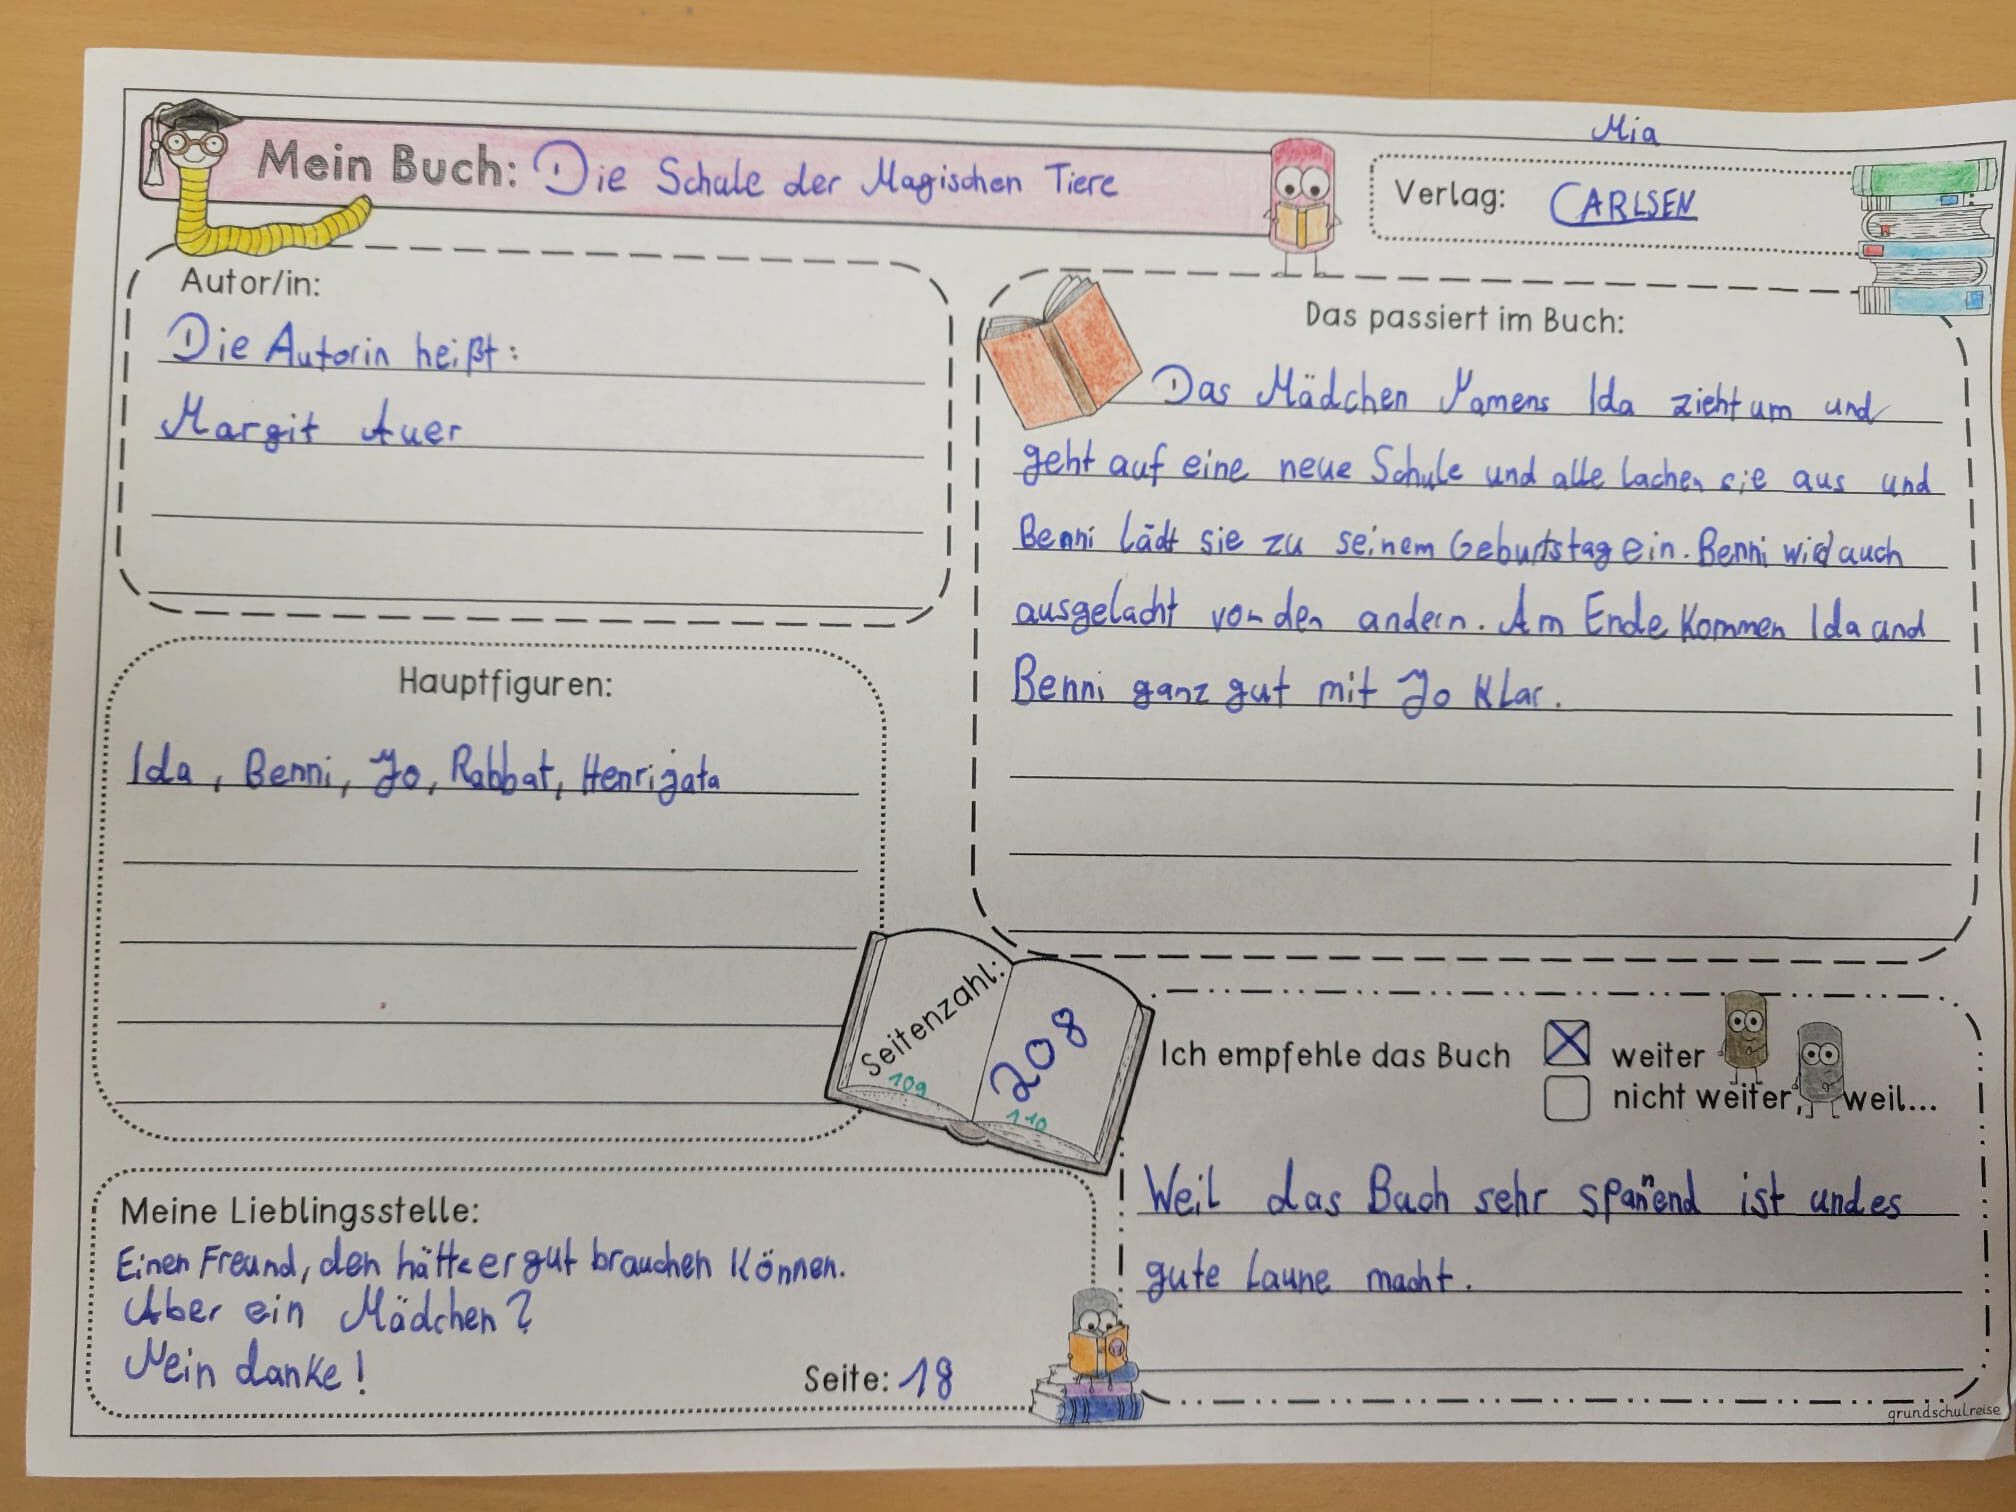 Mia
Mein Buch: Die Schule der Magischen Tiere
Verlag: CARLSEN
Autor/in:
Die Autorin heißt:
Margit Auer
Das passiert im Buch:
Das Mädchen Namens Ida zieht um und
geht auf eine neue Schule und alle lachen sie aus und
Benni lädt sie zu seinem Geburtstag ein. Benni wird auch
ausgelacht von den andern. Am Ende kommen Ida und
Benni ganz gut mit Jo klar.
Hauptfiguren:
Ida, Benni, Jo, Rabbat, Henrijata
Seitenzahl:
208
109
110
Ich empfehle das Buch
weiter
nicht weiter, weil...
Weil das Buch sehr spanend ist und es
gute Laune macht.
Meine Lieblingsstelle:
Einen Freund, den hätte er gut brauchen können.
Aber ein Mädchen?
Nein danke!
Seite: 18
grundschulreise